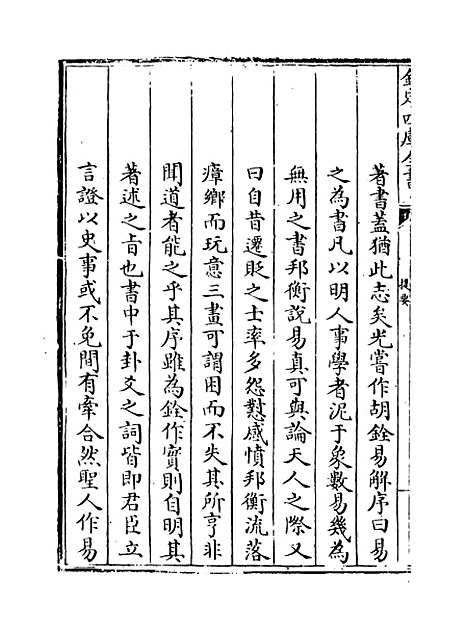 欽定四庫全書
提要
著書蓋猶此志矣光嘗作胡銓易解序曰易
之為書凡以明人事學者泥于象數易幾為
無用之書邦衡說易真可與論天人之際又
曰自昔遷貶之士率多怨懟感憤邦衡流落
瘴鄉而玩意三畫可謂困而不失其所亨非
聞道者能之乎其序雖為銓作實則自明其
著述之旨也書中于卦爻之詞皆即君臣立
言證以史事或不免間有牽合然聖人作易